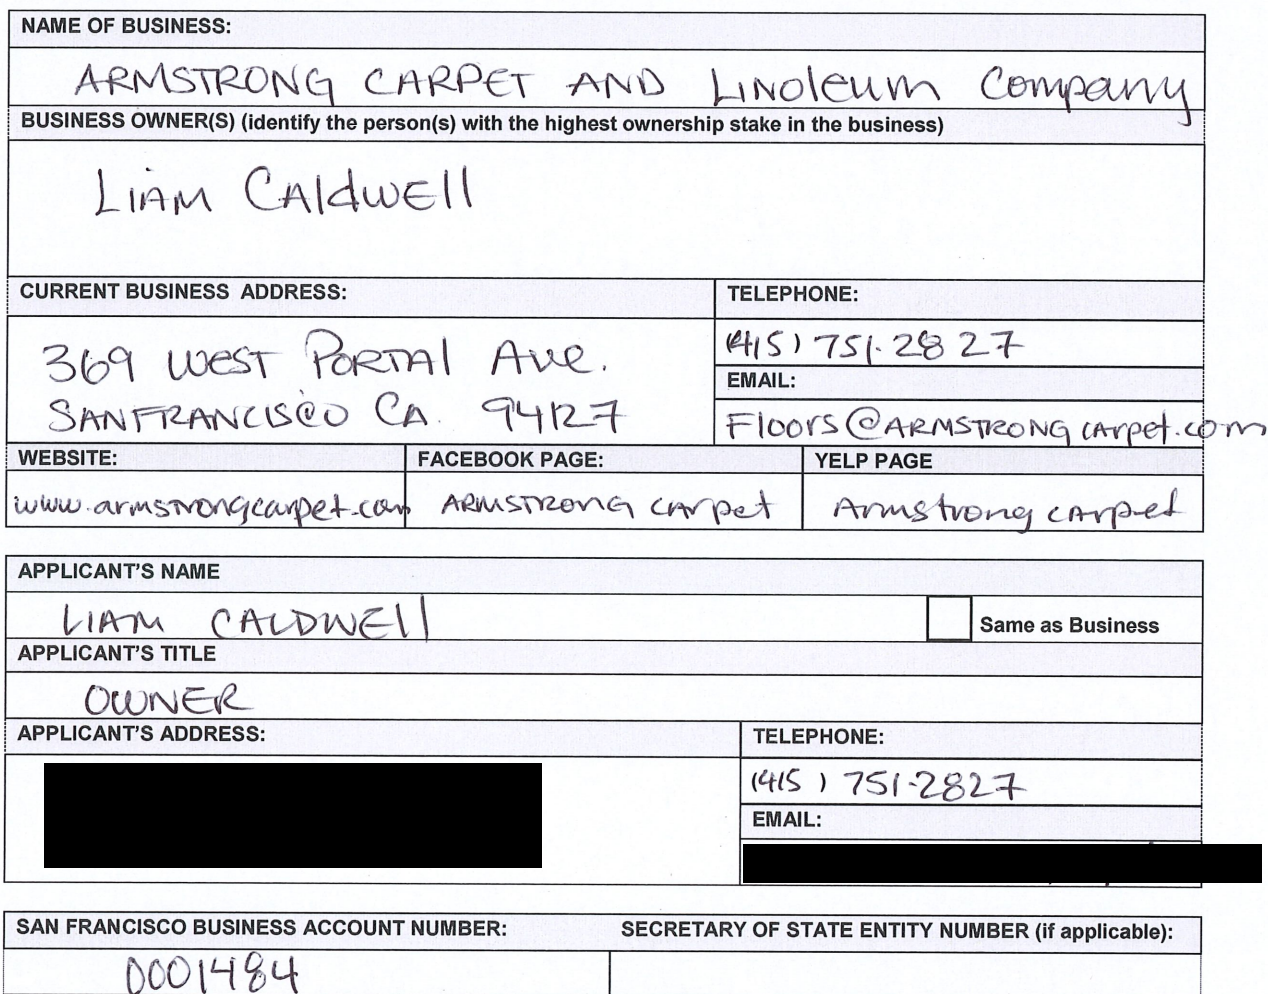 NAME OF BUSINESS:
ARMSTRONG CARPET AND LINOLEUM COMPANY
BUSINESS OWNER(S) (identify the person(s) with the highest ownership stake in the business)
LIAM CALDWELL
CURRENT BUSINESS ADDRESS:
TELEPHONE:
369 WEST PORTAL AVE.
SANFRANCISCO CA. 94127
(415) 751-2827
EMAIL:
Floors@ARMSTRONGcarpet.com
WEBSITE:
FACEBOOK PAGE:
YELP PAGE
www.armstrongcarpet.com
ARMSTRONG carpet
Armstrong carpet
APPLICANT'S NAME
LIAM CALDWELL
Same as Business
APPLICANT'S TITLE
OWNER
APPLICANT'S ADDRESS:
TELEPHONE:
(415) 751-2827
EMAIL:
SAN FRANCISCO BUSINESS ACCOUNT NUMBER:
SECRETARY OF STATE ENTITY NUMBER (if applicable):
0001484